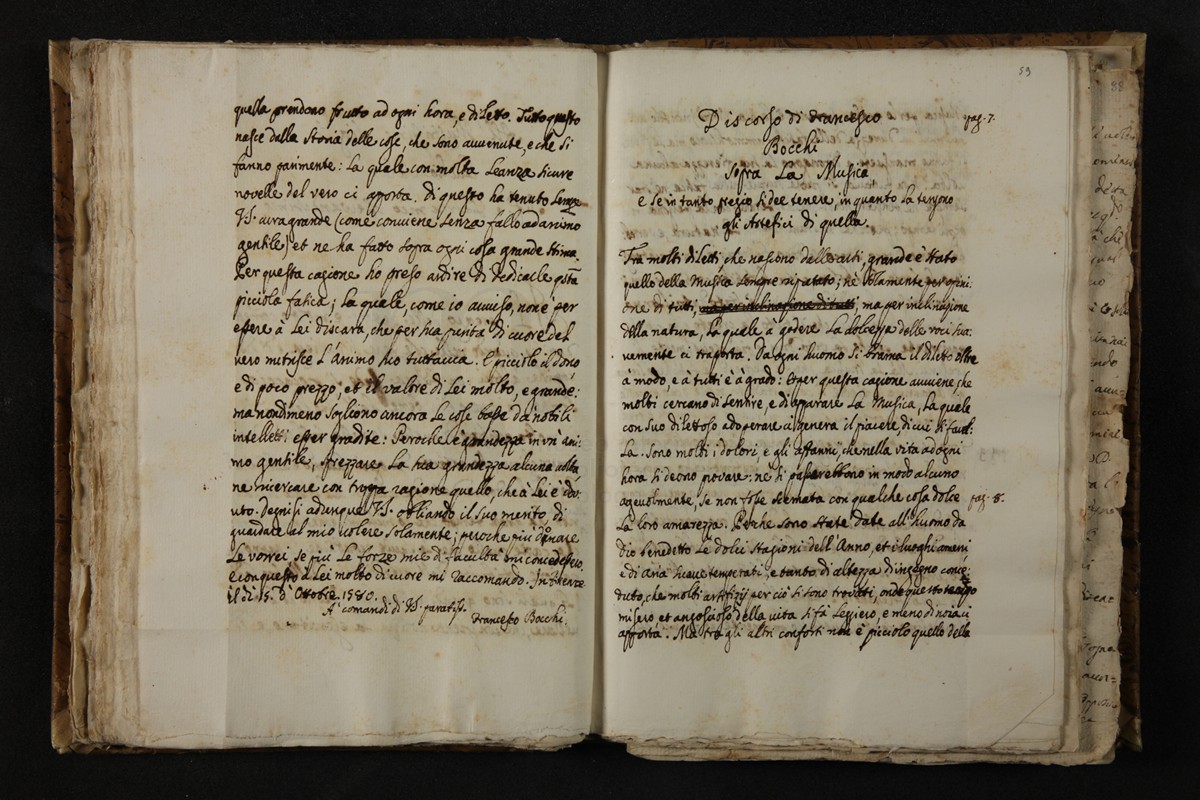 quella prendono frutto ad ogni hora, e diletto. Tutto questo
nasce dalla Storia delle cose, che sono avvenute, e che si
fanno parimente: La quale con molta
novelle del vero ci apporta. Di questo ha tenuto sempre
V.S. cura grande (come conviene senza fallo ad animo
gentile) et ne ha fatto sopra ogni cosa grande stima.
Per questa cagione ho preso ardire di dedicarle q.sta
picciola fatica; La quale, come io avviso, non é per
essere à Lei discara, che per sua purità di cuore del
vero nutrisce L'animo suo tuttavia. È picciolo il dono
e di poco prezzo, et il valore di Lei molto, e grande:
ma nondimeno sogliono ancora Le cose basse da' nobili
intelletti esser gradite: Peroche è grandezza in un' ani:
mo gentile, sprezzare La sua grandezza alcuna volta,
ne ricercare con troppa ragione quello, che à Lei è dov:
uto. Degnisi adunque V.S. obliando il suo merito, di
guardare al mio volere solamente; peroche piú donare
Le vorrei, se piú Le forze mie di facultà
e con questo à Lei molto di cuore mi raccomando. In Firenze
il dì 15. d'Ottobre. 1580.
A' comandi di V.S. paratiss.
Francesco Bocchi.
59
Discorso di Francesco
pag. 7.
Bocchi
Sopra La Musica,
e se in tanto pregio si dee tenere, in quanto La tengono
gli Artefici di quella.
Tra molti diletti, che nascono dalle arti, grande è stato
quello della Musica sempre riputato; né solamente per opini:
one di tutti, ma per inclinazione di tutti, ma per inclinazione
della natura, La quale a godere La dolcezza delle voci sua:
vamente ci trasporta. Da ogni huomo si brama il diletto oltre
à modo, e à tutti è à grado: et per questa cagione avviene, che
molti cercano di sentire, e di apparare La Musica, La quale
con suo dilettoso adoperare ci genera il piacere, di cui si favel:
La. Sono molti i dolori, e gli affanni, che nella vita ad ogni
hora si deono provare: né si passerebbono in modo alcuno
agevolmente, se non fosse scemata con qualche cosa dolce
pag. 8.
La loro amarezza. Perche sono state date all'huomo da
Dio benedetto Le dolci stagioni dell'Anno, et i luoghi ameni
e di aria suave temperati, e tanto di altezza d'ingegno conce:
duto, che molti artifizij per ciò si sono trovati, onde questo tempo
misero et angoscioso della vita si fà Leggiero, e meno di noia ci
apporta. Ma tra gli altri conforti non è picciolo quello della
88